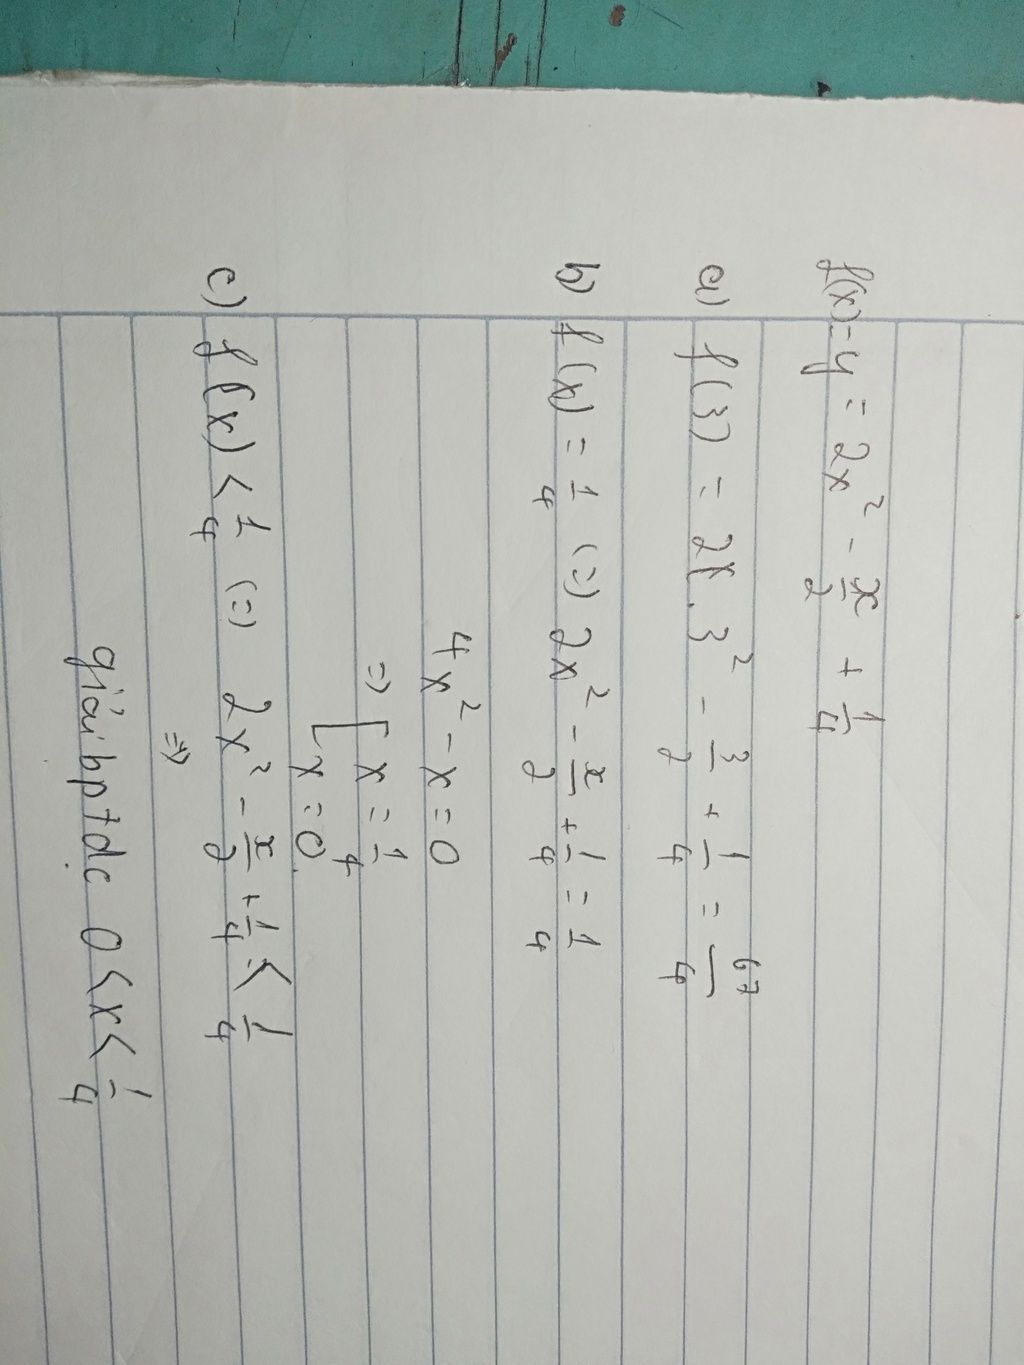 f(x)=y = 2x² - x/2 + 1/4
a) f(3) = 2. 3² - 3/2 + 1/4 = 67/4
b) f(x) = 1/4 (=) 2x² - x/2 + 1/4 = 1/4
4x² - x = 0
=> [ x = 1/4
x = 0.
c) f(x) < 1/4 (=) 2x² - x/2 + 1/4 < 1/4
=>
giải bptđc 0 < x < 1/4